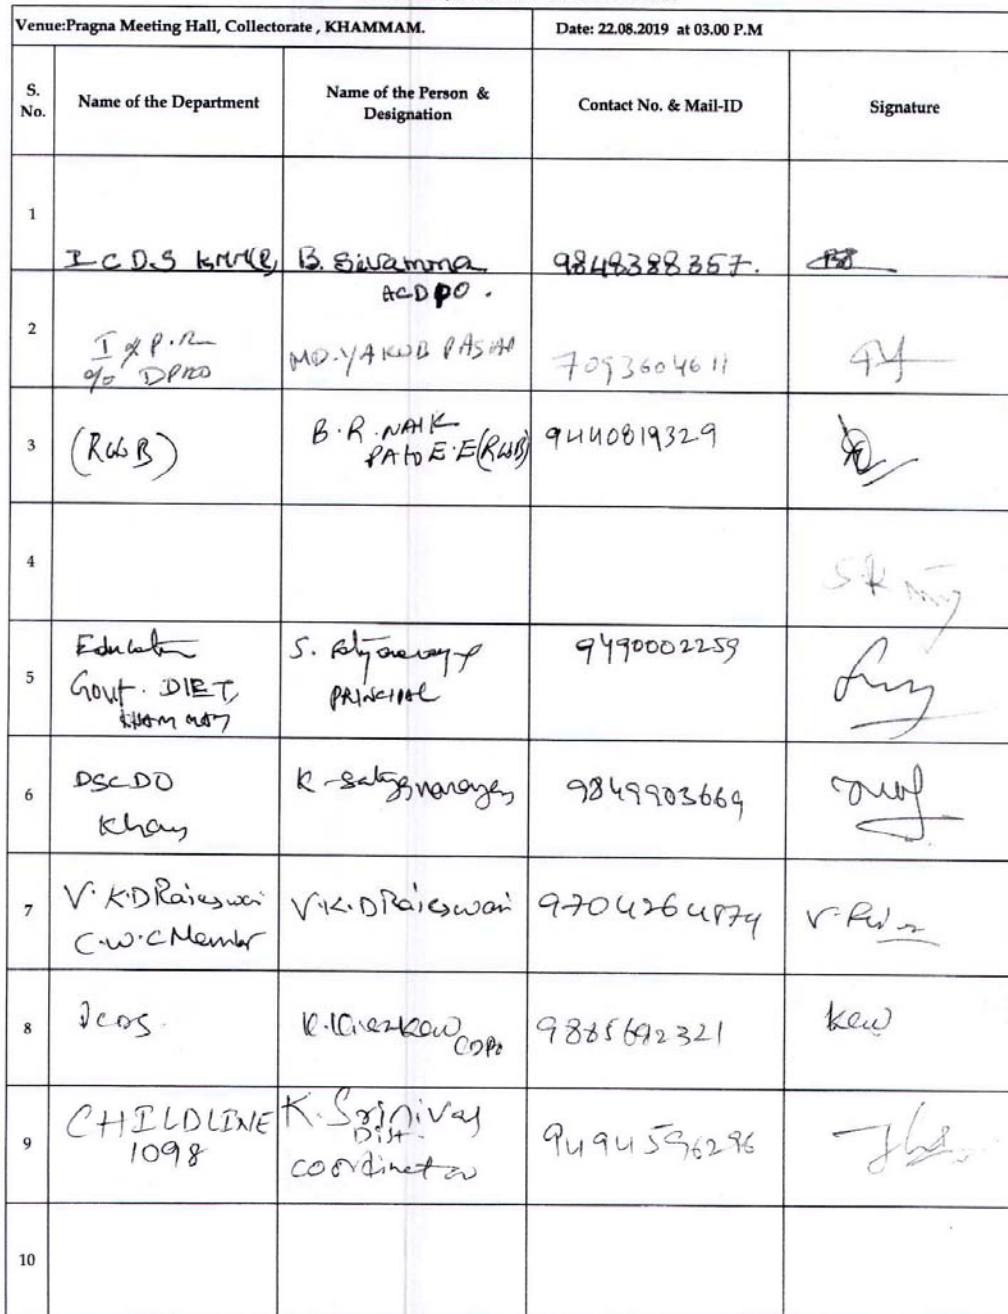 Venue:Pragna Meeting Hall, Collectorate , KHAMMAM.
Date: 22.08.2019 at 03.00 P.M
S. No.
Name of the Department
Name of the Person & Designation
Contact No. & Mail-ID
Signature
1
I C D.S
B. Sivamma
ACDPO.
9848388357.
2
I & P.R
c/o DPRO
MD. YAKUB PASHA
7093604611
3
(RWB)
B.R. NAIK
PA to E.E(RWB)
9440819329
4
S.K
5
Education
Govt. DIET,
KHAMMAM
S.
PRINCIPAL
9490002259
6
DSCDO
K. Satyanarayan
9849903669
7
V. K.D Rajeswari
C.W.C Member
V.K.D Rajeswari
9704264874
8
ICDS.
CDPO
9885692321
9
CHILDLINE
1098
K. Srinivas
Dist.
coordinator
9494596296
10